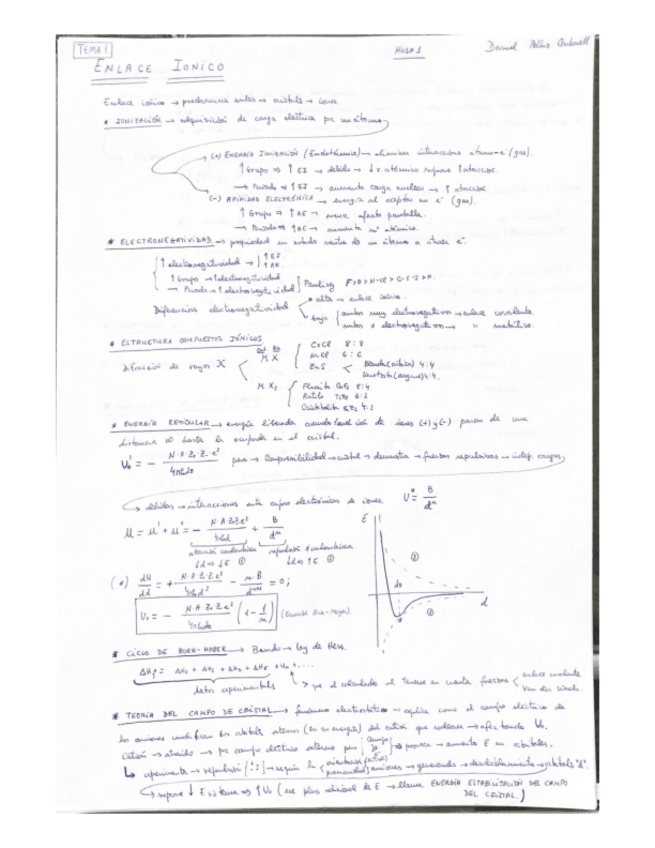 TEMA 1 HOJA 1 Daniel
ENLACE IONICO
Enlace iónico → predomina sales → cristals → iones.
* IONIZACIÓN → adquisición de carga eléctrica por un átomo
(+) ENERGÍA IONIZACIÓN (Endotérmica) → eliminar interacciones átomo-e⁻ (gas).
↑ Grupo ⇒ ↑ EI → debido → ↓ r. atómico supone ↑ atracción.
→ Periodo ⇒ ↑ EI → aumenta carga nuclear → ↑ atracción.
(-) AFINIDAD ELECTRÓNICA → energía al aceptar un e⁻ (gas).
↑ Grupo ⇒ ↑ AE → menor efecto pantalla.
→ Periodo ⇒ ↑ AE → aumenta nº atómico.
* ELECTRONEGATIVIDAD → propiedad en estado neutro de un átomo a atraer e⁻.
↑ electronegatividad → ↑ EI ↑ AE.
↑ Grupo → ↑ electronegatividad
→ Periodo → ↑ electronegatividad } Pauling
Diferencias electronegatividad
alta → enlace iónico.
baja { ambos muy electronegativos → enlace covalente
ambos e electronegativos → " metálico.
* ESTRUCTURA COMPUESTOS IÓNICOS
Difracción de rayos X < MX { CsCl 8:8
NaCl 6:6
ZnS < Blenda 4:4
Wurtzita 4:4.
MX₂ { Fluorita CaF₂ 8:4
Rutilo TiO₂ 6:3
Cristobalita 4:2
* ENERGÍA RETICULAR → energía liberada cuando iones (+) y (-) pasan de una
distancia ∞ hasta la ocupada en el cristal.
U₀' = - N·A·Z·Z·e² / 4πε₀d₀ pero → Compresibilidad → cristal → demuestra → fuerzas repulsivas → indep. cargas,
debidas → interacciones entre capas electrónicas de iones. U'' = B / dⁿ
U = U' + U'' = - N·A·Z·Z·e² / 4πε₀d + B / dⁿ
atracción ↓d ⇒ ↓E ① repulsión ↓d ⇒ ↑E ②
(*) dU / dd = + N·A·Z·Z·e² / 4πε₀d² - n·B / dⁿ⁺¹ = 0;
U₀ = - N·A·Z·Z·e² / 4πε₀d₀ (1 - 1/n)
E d₀ d ① ②
* CICLO DE BORN-HABER → Basado → Ley de Hess.
ΔHf = ΔH₁ + ΔH₂ + ΔH₃ + ΔH₄ + U₀ + ....
datos experimentals en cuenta fuerzas < enlace covalente
Van der Waals.
* TEORÍA DEL CAMPO DE CRISTAL → fenómeno electrostático → explica como el campo eléctrico de
los aniones modifican los orbitals atomos (en su energía) del catión que rodean → afectando U₀.
Catión → atraído → por campo eléctrico externo pero → provoca → aumento E en orbitales.
↳ experimenta → repulsión → según la { orientación proximidad } aniones → generando → desdoblamiento → orbitals "d".
→ supone ↓ E → ↑ U₀ (ese plus adicional de E → llama ENERGÍA ESTABILIZACIÓN DEL CAMPO
DEL CRISTAL.)